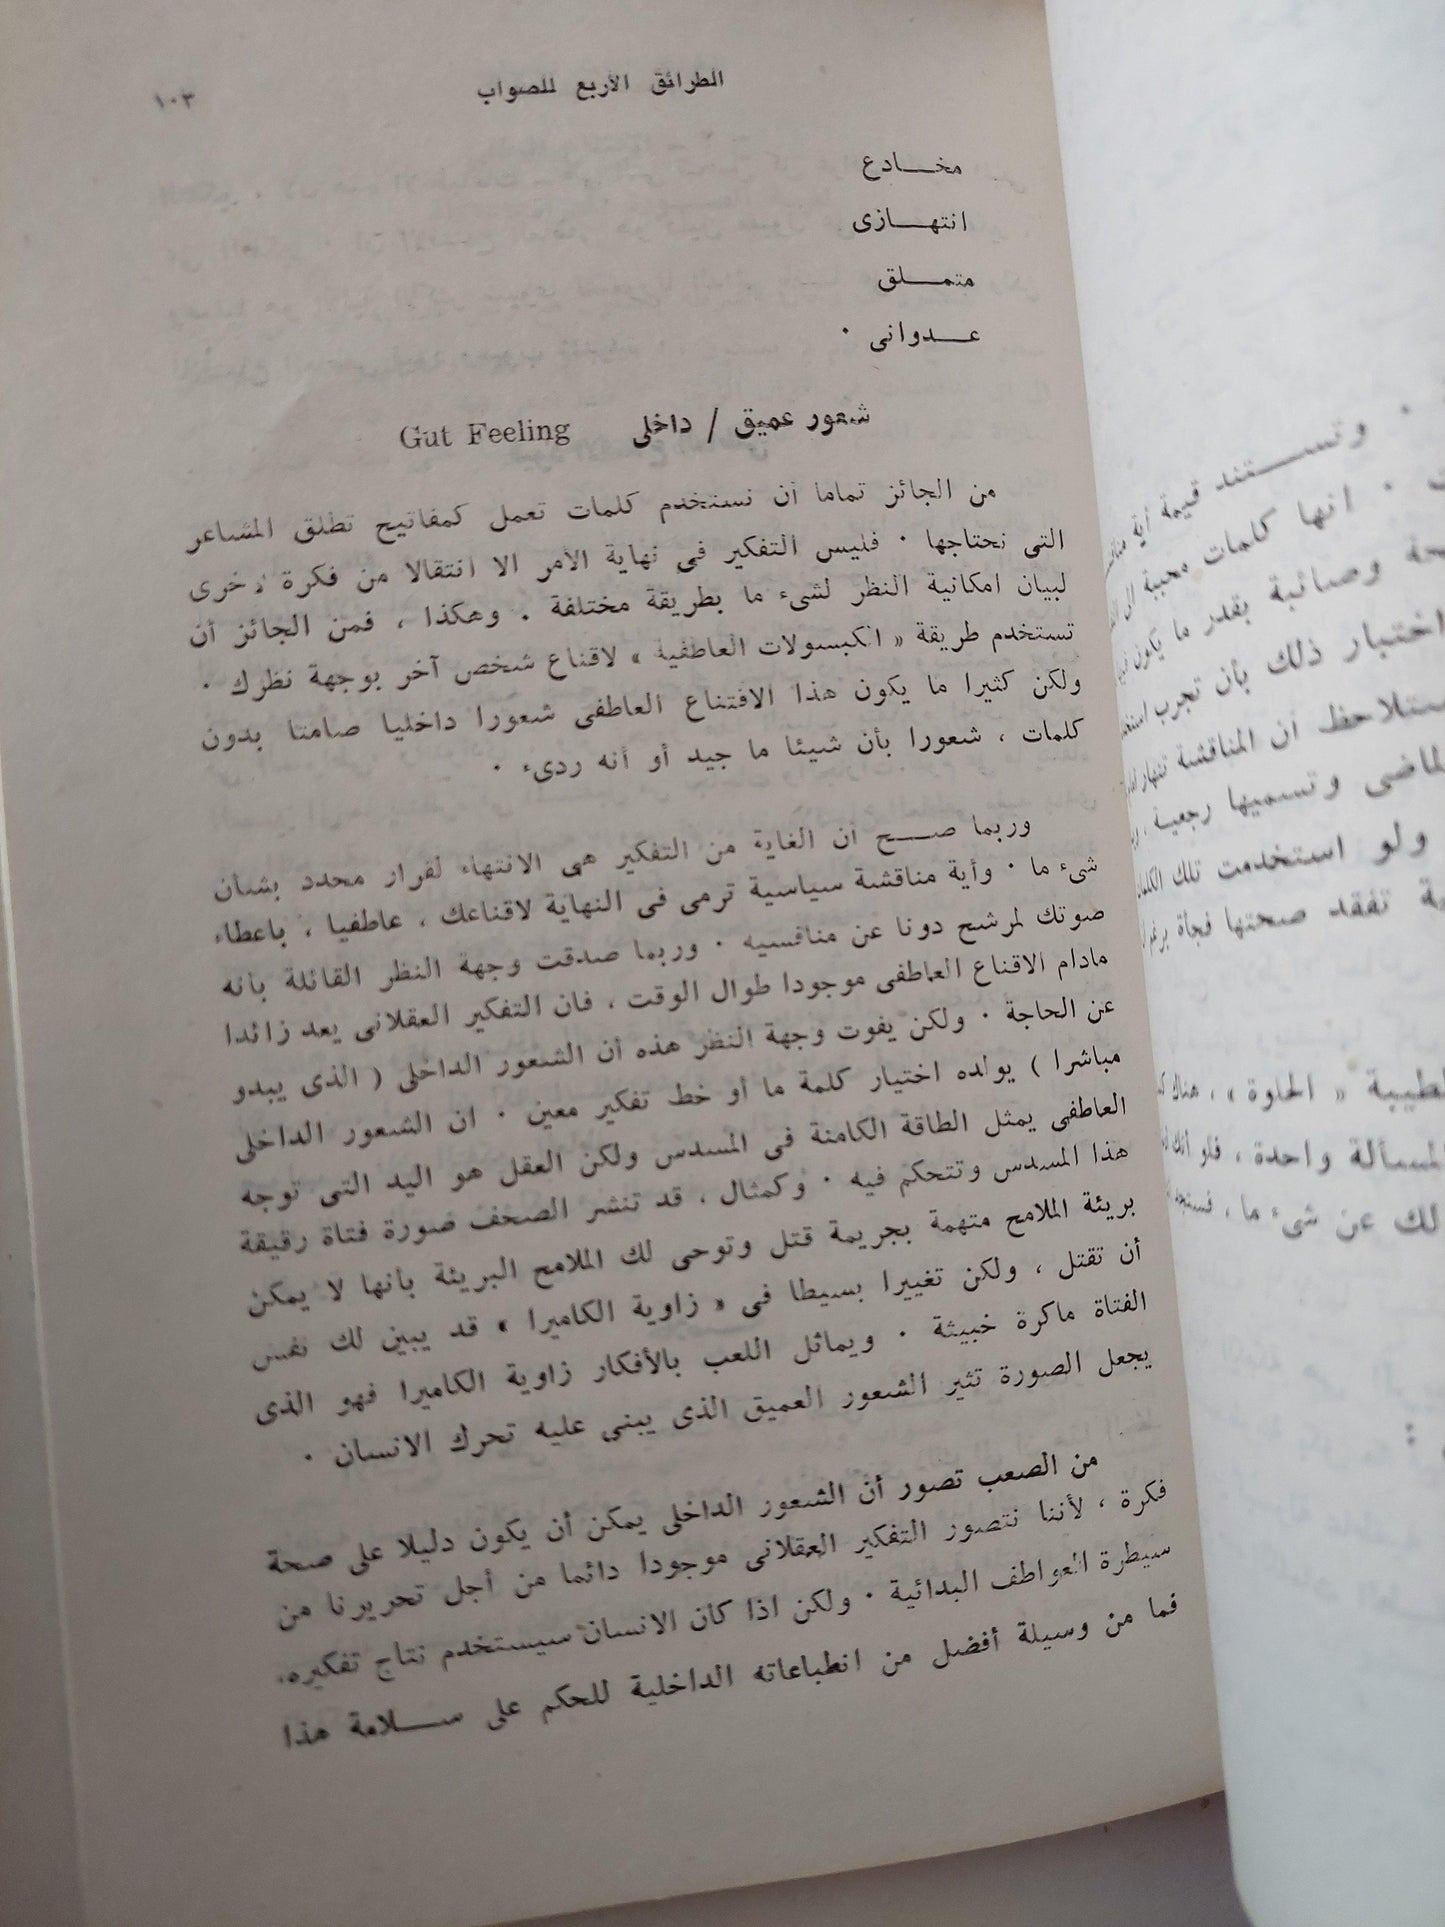 الطرائق الأربع للصواب ١٠٣
مخـــادع
انتهـــازى
متمـــلق
عـــدوانى ·
شعور عميق / داخلى Gut Feeling
من الجائز تماما أن نستخدم كلمات تعمل كمفاتيح تطلق المشاعر
التى نحتاجها · فليس التفكير فى نهاية الأمر الا انتقالا من فكرة لأخرى
لبيان امكانية النظر لشىء ما بطريقة مختلفة . وهكذا ، فمن الجائز أن
تستخدم طريقة « الكبسولات العاطفية » لاقناع شخص آخر بوجهة نظرك ·
ولكن كثيرا ما يكون هذا الاقتناع العاطفى شعورا داخليا صامتا بدون
كلمات ، شعورا بأن شيئا ما جيد أو أنه ردىء ·
وربما صـــح أن الغاية من التفكير هى الانتهاء لقرار محدد بشأن
شىء ما · وأية مناقشة سياسية ترمى فى النهاية لاقناعك ، عاطفيا ، باعطاء
صوتك لمرشح دونا عن منافسيه · وربما صدقت وجهة النظر القائلة بأنه
مادام الاقناع العاطفى موجودا طوال الوقت ، فان التفكير العقلانى يعد زائدا
عن الحاجة · ولكن يفوت وجهة النظر هذه أن الشعور الداخلى ( الذى يبدو
مباشرا ) يولده اختيار كلمة ما أو خط تفكير معين · ان الشعور الداخلى
العاطفى يمثل الطاقة الكامنة فى المسدس ولكن العقل هو اليد التى توجه
هذا المسدس وتتحكم فيه · وكمثال ، قد تنشر الصحف صورة فتاة رقيقة
بريئة الملامح متهمة بجريمة قتل وتوحى لك الملامح البريئة بأنها لا يمكن
أن تقتل ، ولكن تغييرا بسيطا فى « زاوية الكاميرا » قد يبين لك نفس
الفتاة ماكرة خبيثة · ويماثل اللعب بالأفكار زاوية الكاميرا فهو الذى
يجعل الصورة تثير الشعور العميق الذى يبنى عليه تحرك الانسان ·
من الصعب تصور أن الشعور الداخلى يمكن أن يكون دليلا على صحة
فكرة ، لأننا نتصور التفكير العقلانى موجودا دائما من أجل تحريرنا من
سيطرة العواطف البدائية · ولكن اذا كان الانسان سيستخدم نتاج تفكيره،
فما من وسيلة أفضل من انطباعاته الداخلية للحكم على ســـلامة هذا
· وتســـتند قيمة أية
· انها كلمات محببة الى
وصائبة بقدر ما يكون
اختبار ذلك بأن تجرب
ستلاحظ أن المناقشة تنهار
وتسميها رجعية ،
ولو استخدمت تلك
تفقد صحتها فجأة برغم
« الحلوة » ، هناك
لمسألة واحدة ، فلو أنك
لك عن شىء ما ، فستجد
: